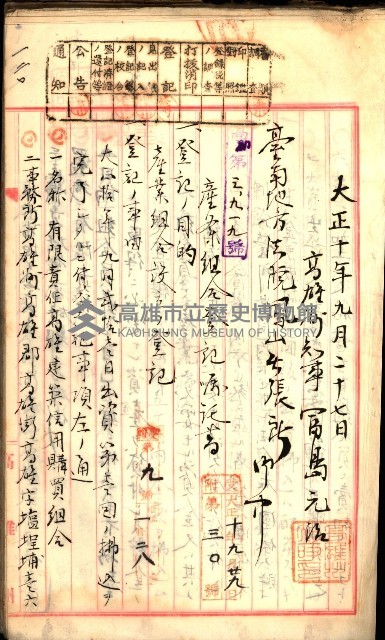 大正十年九月二十七日
高雄州知事富島元治
臺南地方法院鳳山出張所御中
產業組合登記嘱託書
一、登記ノ目的
產業組合設立登記
一、登記ノ事由
大正拾年九月貳拾壱日出資第壱回ノ拂込ヲ
完了シタルニ付登記事項左ノ通
一名称 有限責任高雄建築信用購買組合
二事務所高雄州高雄郡高雄街高雄字塩埕埔壱六
第三、九一九號
第九一二八
十九廿九
第三〇號
登記
公告
通知
高雄市立歷史博物館
KAOHSIUNG MUSEUM OF HISTORY
高雄州